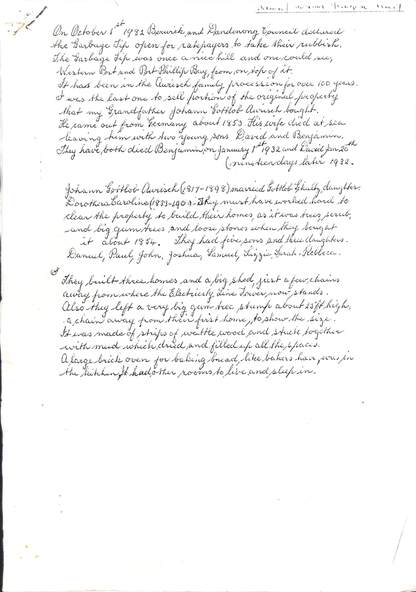 On October 1st 1982 Berwick and Dandenong Council declared
the Garbage Tip open for ratepayers to take their rubbish.
The Garbage Tip was once a nice hill and one could see,
Western Port and Port Phillip Bay, from, on, top of it.
It has been in the Aurisch family procession for over 100 years.
I was the last one to sell portion of the original property
that my Grandfather Johann Gottlob Aurisch bought.
He came out from Germany about 1853. His wife died at sea
leaving him with two young sons David and Benjamin.
They have both died Benjamin on January 1st 1932 and David Jan 20th
(nineteen days later 1932.
Johann Gottlob Aurisch (1817-1898) married Gottlob daughter,
Dorothea Caroline They must have worked hard to
clear the property to build their homes, as it was trees, scrub,
and big gum trees and loose stones when they bought
it about 1854. They had five sons and three daughters.
Daniel, Paul, John, Joshua, Samuel, Lizzie, Sarah, Rebecca.
They built three homes, and a big shed, just a few chains
away from where the Electricity Line Tower now stands.
Also they left a very big gum tree stump about 25ft high,
a chain away from their first home, to show the size.
It was made of strips of wattle wood and stuck together
with mud which dried and filled up all the spaces.
A large brick oven for baking bread, like bakers have, was in
the Kitchen, It had other rooms to live and sleep in.